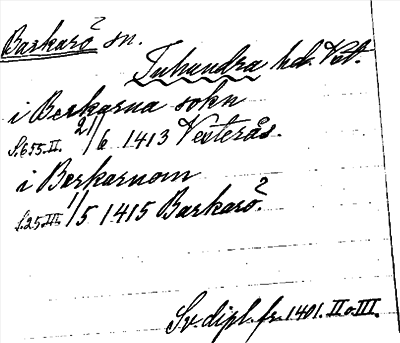 Barkarö sn.
Tuhundra hd. Vst.
i Berkarna sokn
S. 655. II. 21/6 1413 Vesterås.
i Berkarnom
S. 25. III. 1/5 1415 Barkarö.
Sv. dipl. fr. 1401. II o. III.